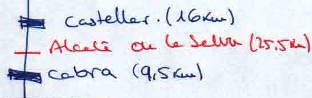 Castellar. (16Km)
Alcalá de la Selva (25.5Km)
Cabra (9,5Km)